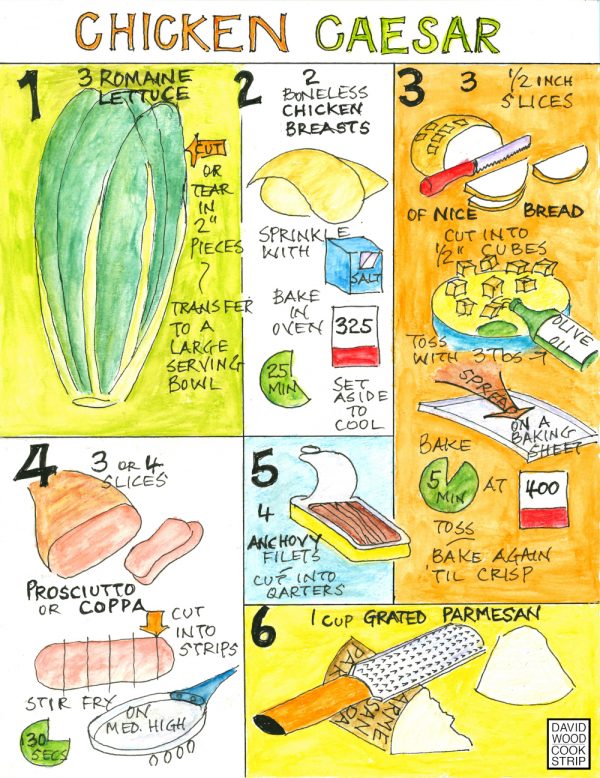 CHICKEN CAESAR
1
3 ROMAINE
LETTUCE
CUT
OR
TEAR
IN
2"
PIECES
TRANSFER
TO A
LARGE
SERVING
BOWL
2
2
BONELESS
CHICKEN
BREASTS
SPRINKLE
WITH
SALT
BAKE
IN
OVEN
325
25
MIN
SET
ASIDE
TO
COOL
3
3 1/2 INCH
SLICES
OF NICE BREAD
CUT INTO
1/2" CUBES
OLIVE
OIL
TOSS
WITH 3 TBS →
SPREAD
ON A
BAKING
SHEET
BAKE
5
MIN
AT
400
TOSS
BAKE AGAIN
'TIL CRISP
4
3 OR 4
SLICES
PROSCIUTTO
OR COPPA
CUT
INTO
STRIPS
STIR FRY
ON
MED. HIGH
30
SECS
5
4
ANCHOVY
FILETS
CUT INTO
QARTERS
6
1 CUP GRATED PARMESAN
DAVID
WOOD
COOK
STRIP